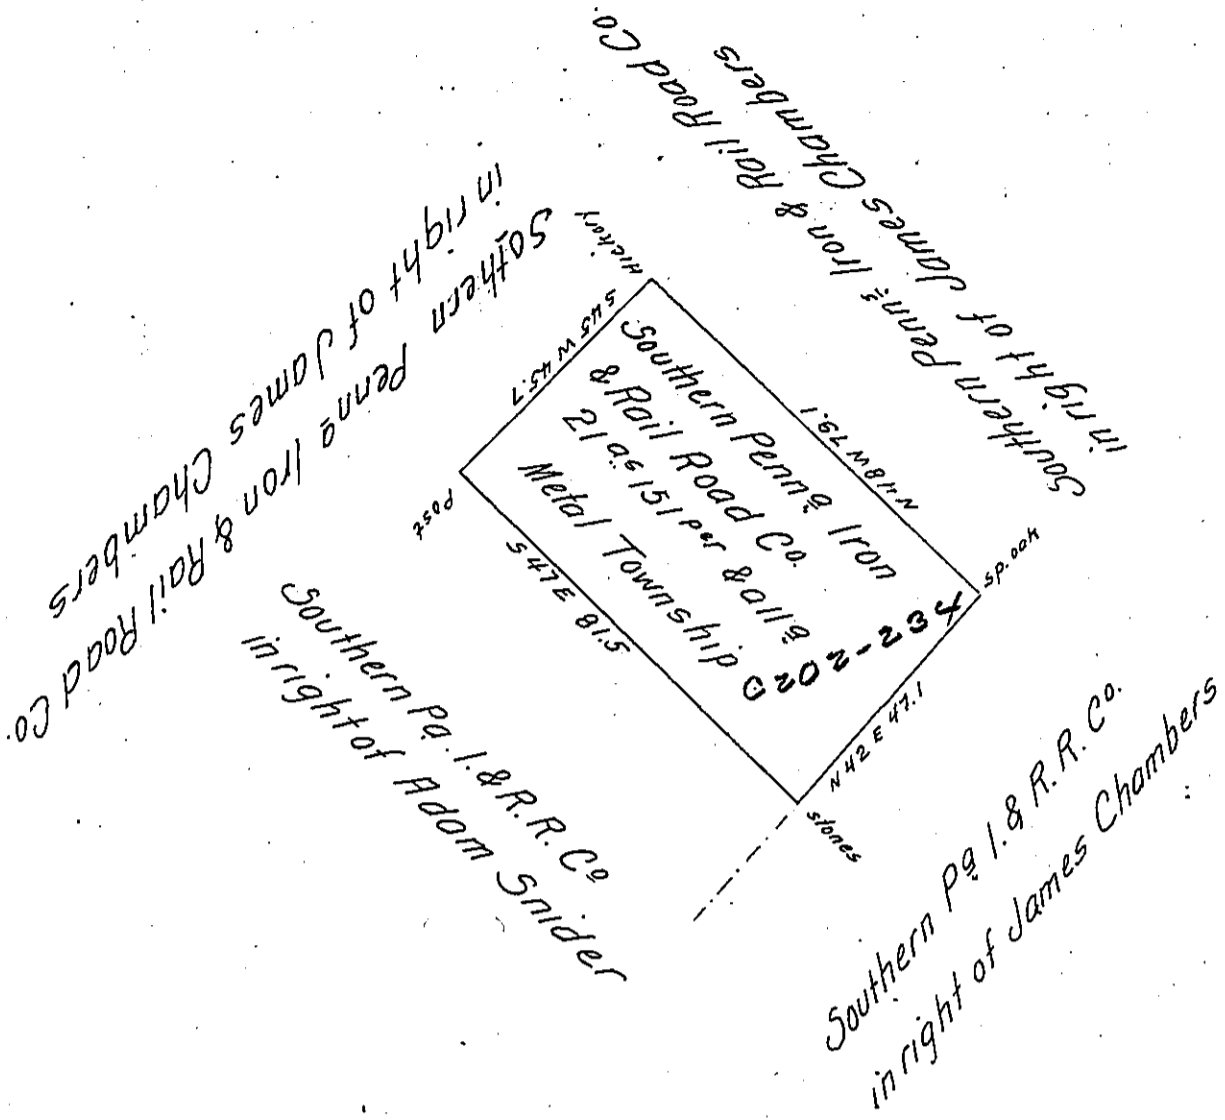 Southern Penn.ª Iron & Rail Road Co.
in right of James Chambers
Sothern Pennª Iron & Rail Road Co.
in right of James Chambers
Hickory
S 45 W 45.7
N 48 W 79.1
Southern Penn.ª Iron
& Rail Road Co.
21 a.s 151 per & all.ª
Metal Township
C202-234
Post
S 47 E 81.5
sp. oak
N 42 E 47.1
stones
Southern Pa. I. & R. R. Cº
in right of Adam Snider
Southern Pª I. & R. R. Cº.
in right of James Chambers